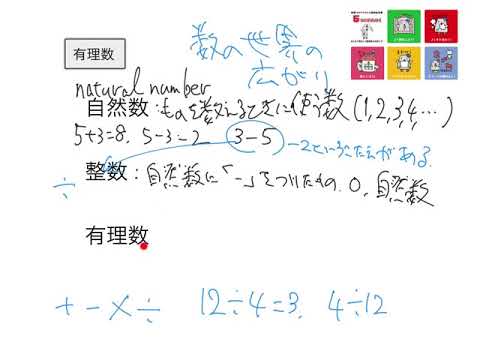 有理数
数の世界の
広がり
natural number
自然数:ものを数えるときに使う数(1,2,3,4,…)
5+3=8, 5-3=2 3-5 -2というこたえがある.
÷
整数:自然数に「-」をつけたもの. 0, 自然数
有理数
+ - × ÷ 12÷4=3. 4÷12